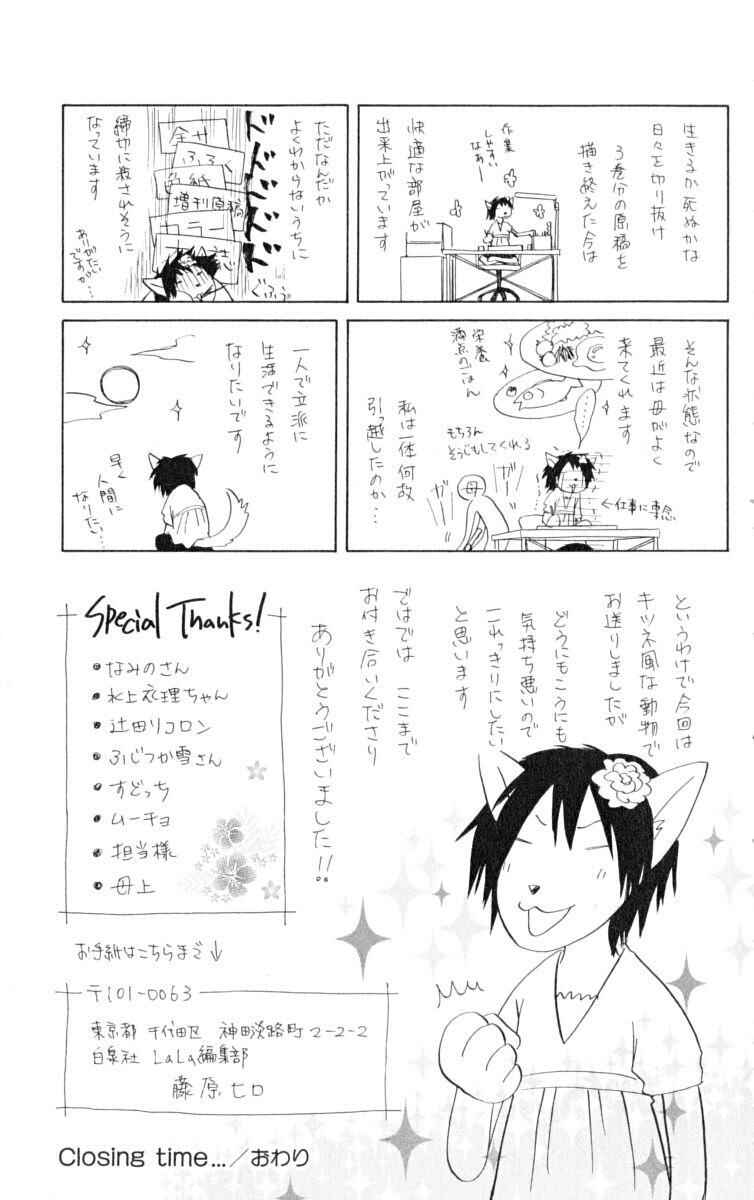 生きるか死ぬかな
日々を切り抜け
3巻分の原稿を
描き終えた今は
作業
しやすい
なぁー
快適な部屋が
出来上がっています
ただなんだか
よくわからないうちに
ドドドドド
全サ
ふろく
色紙
増刊原稿
カラー
ぐふぅ
締切に殺されそうに
なっています
ありがたい
ですが…
そんな状態なので
最近は母がよく
来てくれます
栄養
満点のごはん
……
もちろん
そうじもしてくれる
母
ガー
ガー
←仕事に専念
私は一体何故
引っ越したのか…
一人で立派に
生活できるように
なりたいです
早く
人間に
なりたい…
というわけで今回は
キツネ風な動物で
お送りしましたが
どうにもこうにも
気持ち悪いので
これっきりにしたい
と思います
ではでは ここまで
お付き合いくださり
ありがとうございました!!
Special Thanks!
●なみのさん
●水上衣理ちゃん
●辻田リコロン
●ふじつか雪さん
●すどっち
●ムーチョ
●担当様
●母上
お手紙はこちらまで↓
〒101-0063
東京都 千代田区 神田淡路町2-2-2
白泉社 LaLa編集部
藤原ヒロ
Closing time…／おわり